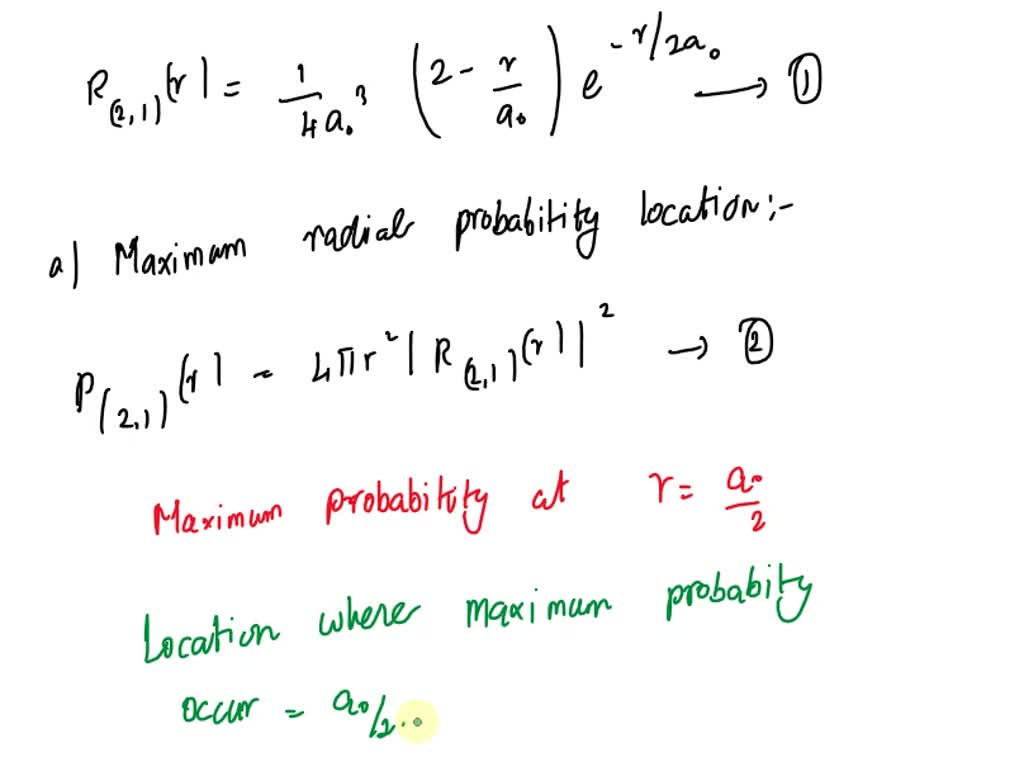 R(2,1)(r) = 1/4a₀³ (2 - r/a₀) e^-r/2a₀ → ①
a) Maximum radial probability location:-
P(2,1)(r) = 4πr² | R(2,1)(r) |² → ②
Maximum probability at r = a₀/2
Location where maximum probabity
occur = a₀/2..